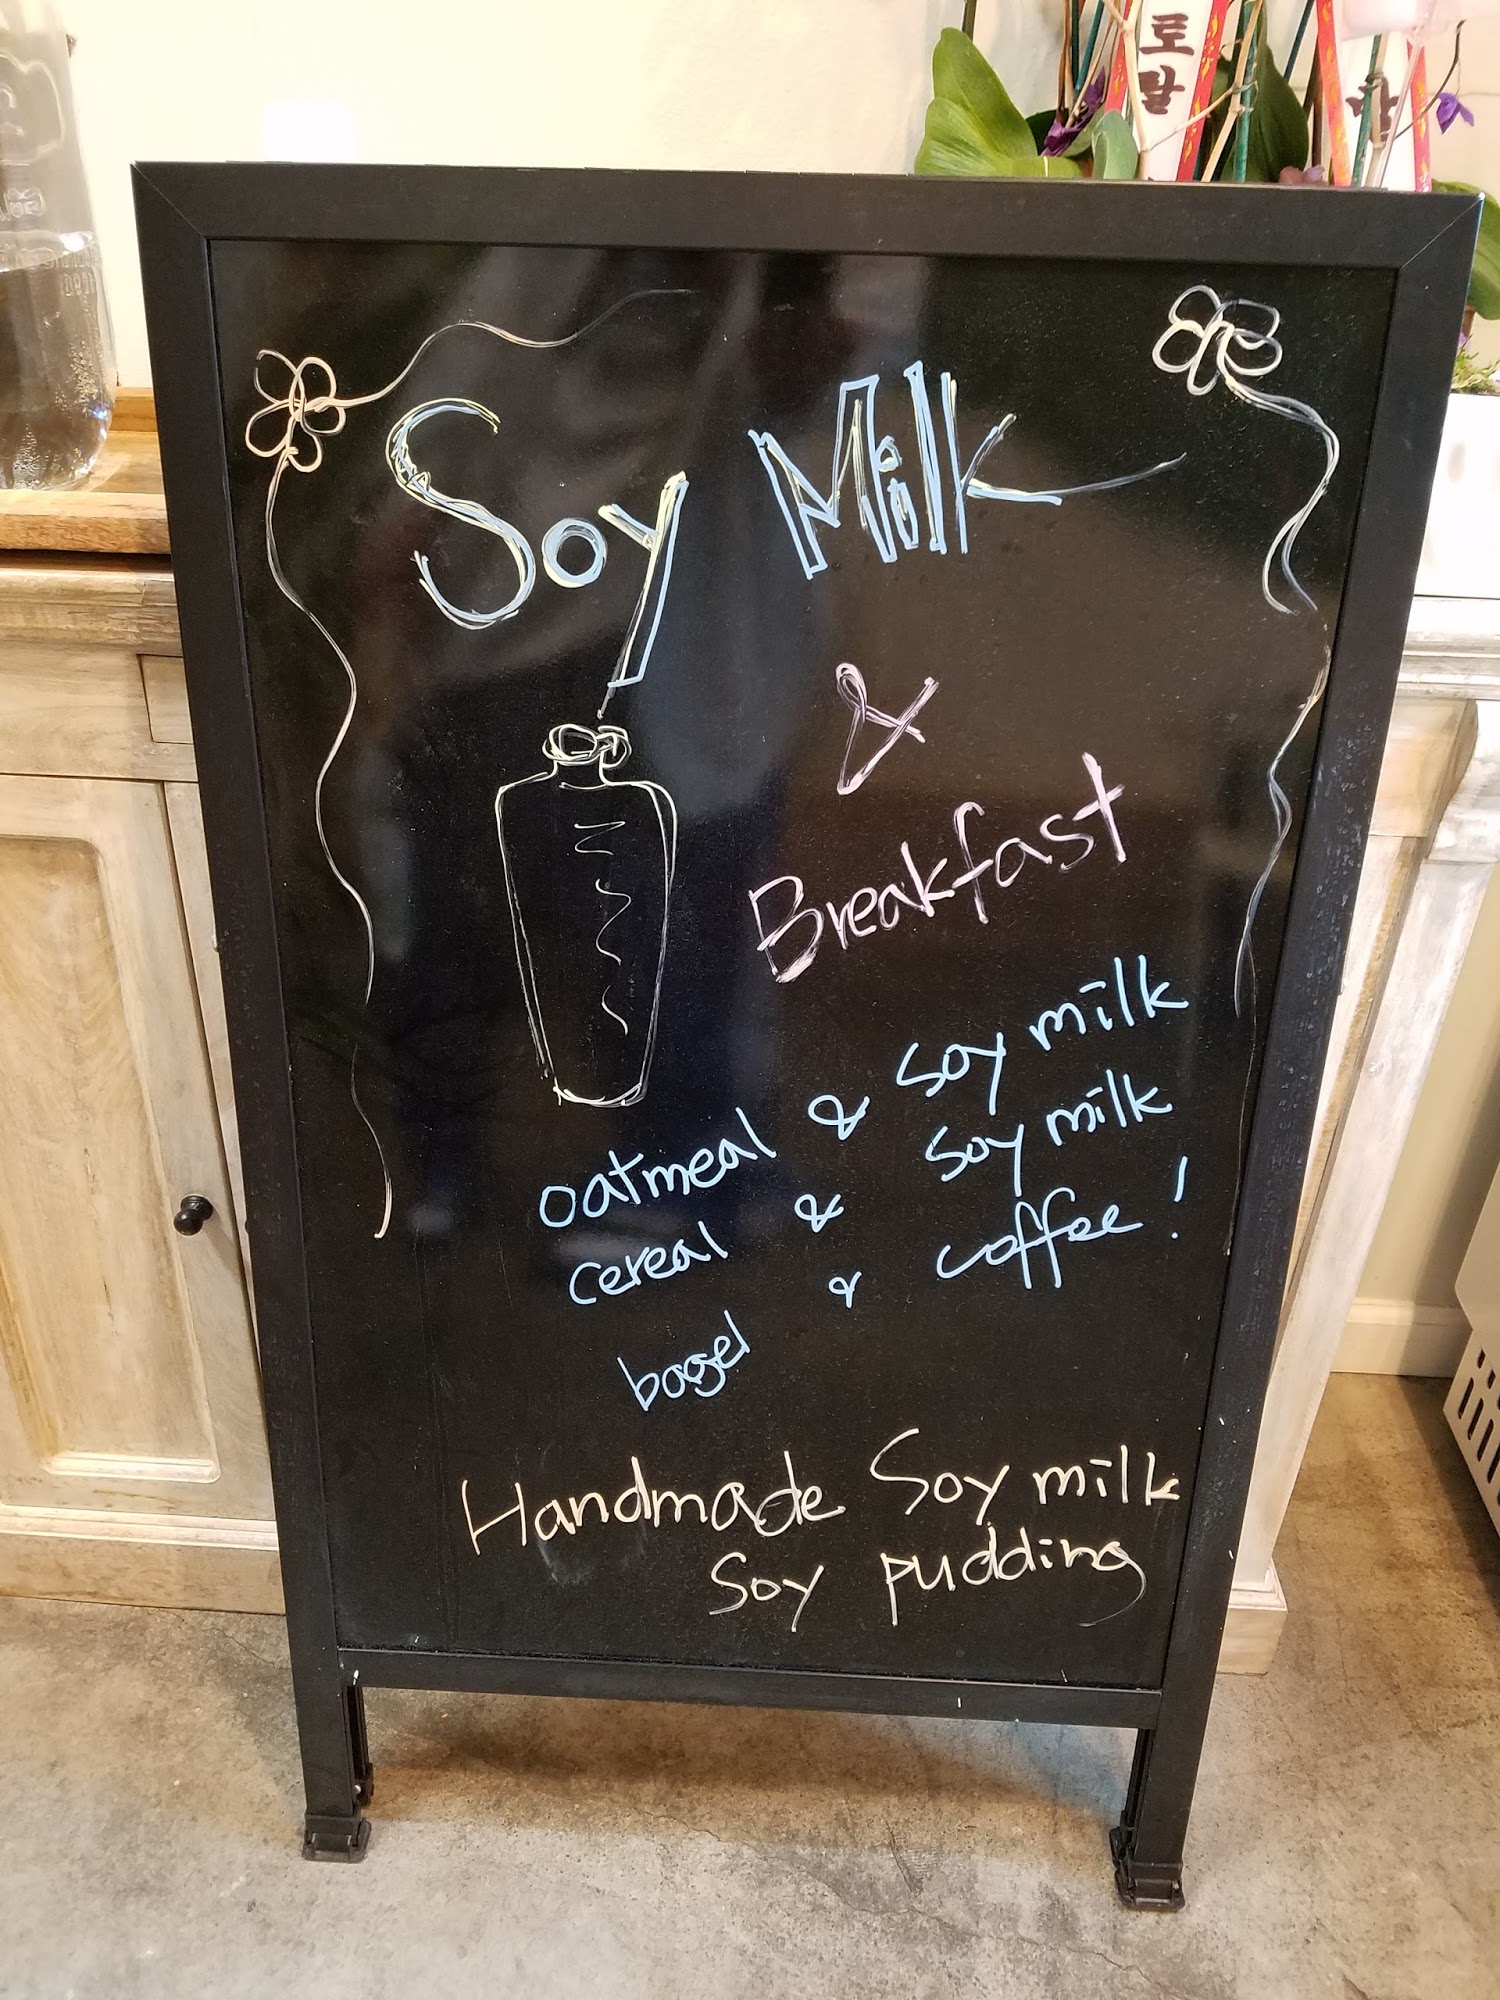 로
탈
Soy Milk
&
Breakfast
oatmeal & soy milk
cereal & soy milk
bagel & coffee!
Handmade Soy milk
Soy pudding